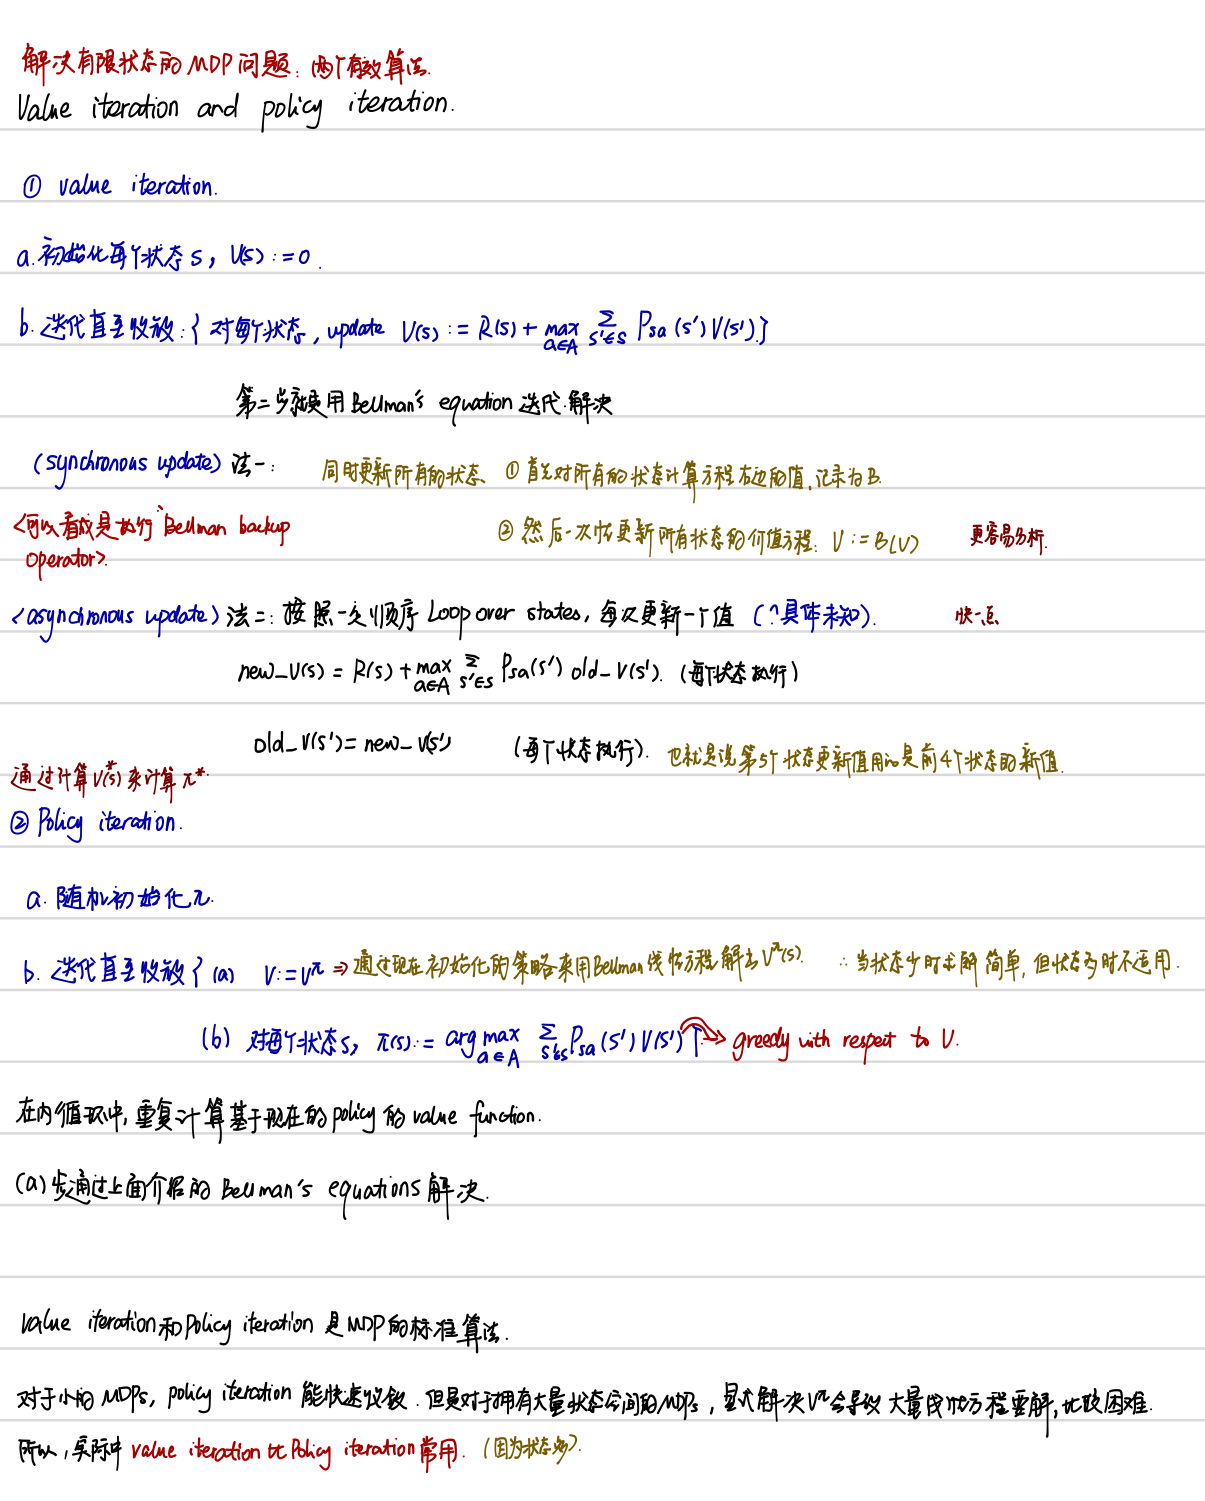 解决有限状态的MDP问题：两个有效算法.
Value iteration and policy iteration.
① value iteration.
a. 初始化每个状态 s, V(s) := 0.
b. 迭代直至收敛：{ 对每个状态, update V(s) := R(s) + max_{a∈A} Σ_{s'∈S} P_{sa}(s') V(s').}
第二步就是用 Bellman's equation 迭代解决
(synchronous update) 法一： 同时更新所有的状态、 ① 首先对所有的状态计算方程右边的值,记录为B.
<可以看成是执行 "Bellman backup ② 然后一次性更新所有状态的价值方程. V := B(V) 更容易分析.
operator>.
<asynchronous update> 法二：按照一定顺序 Loop over states, 每次更新一个值 (?具体未知). 快一点
new_V(s) = R(s) + max_{a∈A} Σ_{s'∈S} P_{sa}(s') old_V(s'). (每个状态执行)
old_V(s') = new_V(s') (每个状态执行). 也就是说第5个状态更新值用的是前4个状态的新值.
通过计算V*(s)来计算π*.
② Policy iteration.
a. 随机初始化π.
b. 迭代直至收敛 { (a) V := V^π ⇒ 通过现在初始化的策略来用Bellman线性方程解出V^π(s). ∴ 当状态少时求解简单, 但状态多时不适用.
(b) 对每个状态s, π(s) := arg max_{a∈A} Σ_{s'∈S} P_{sa}(s') V(s') } → greedy with respect to V.
在内循环中,重复计算基于现在的 policy 的 value function.
(a) 步通过上面介绍的 Bellman's equations 解决.
Value iteration和Policy iteration 是MDP的标准算法.
对于小的 MDPs, policy iteration 能快速收敛. 但是对于拥有大量状态空间的MDPs, 显式解决V^π会导致大量线性方程要解,比较困难.
所以, 实际中 value iteration 比 Policy iteration 常用. (因为状态多).